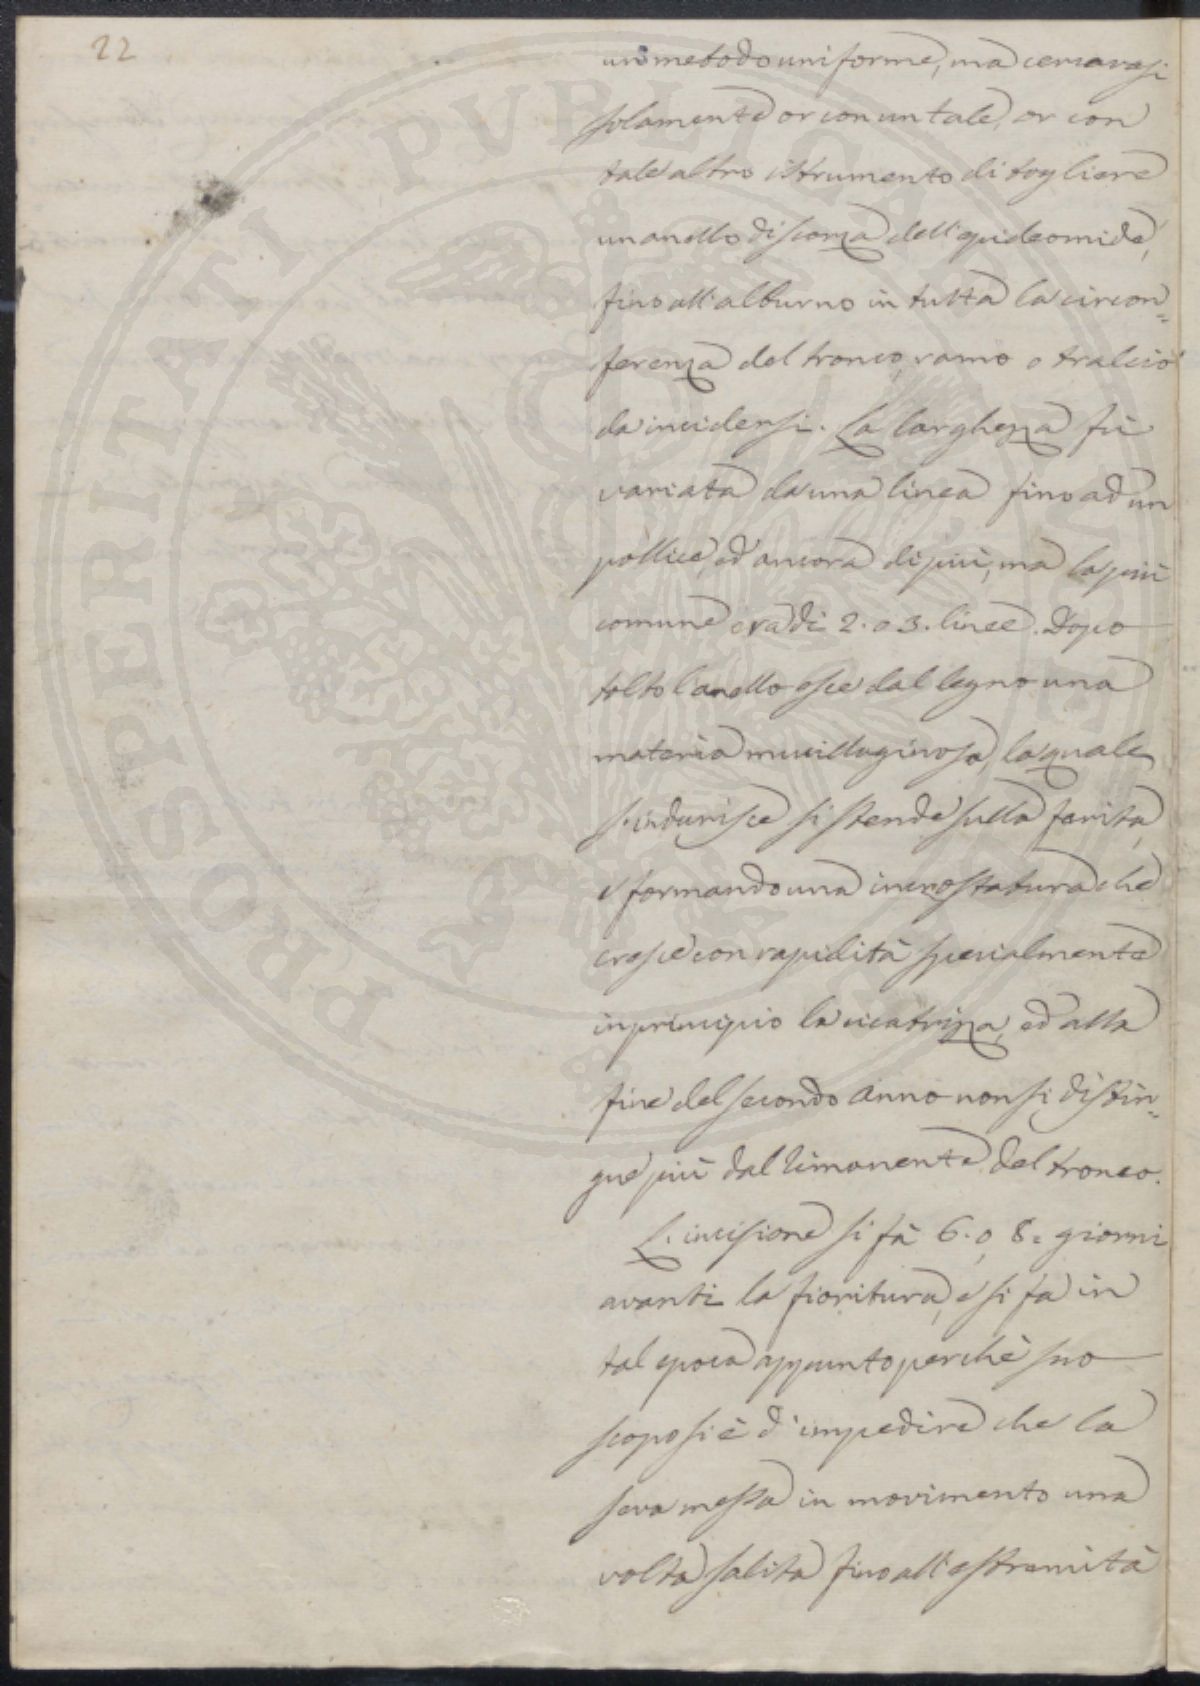 22
un metodo uniforme, ma cercavasi
solamente or con un tale, or con
tale altro istrumento di togliere
un anello di scorza dell'epideomide,
fino all'alburno in tutta la circon=
ferenza del tronco, ramo o tralcio
da incidersi. La larghezza fù
variata da una linea fino ad un
pollice, ed ancora di più, ma la più
comune era di 2. o 3. linee. Dopo
tolto l'anello esce dal legno una
materia mucillaginosa, la quale
s'indurisce si stende sulla ferita,
e formando una incrostatura che
cresce con rapidità specialmente
in principio la cicatrizza, ed alla
fine del secondo anno non si distin=
gue più dal rimanente del tronco.
L'incisione si fà 6. o 8. giorni
avanti la fioritura, e si fa in
tal epoca appunto perchè suo
scopo si è d'impedire che la
seva messa in movimento una
volta salita fino all'estremità
PROSPERITATI PUBLICAE AUGENDAE